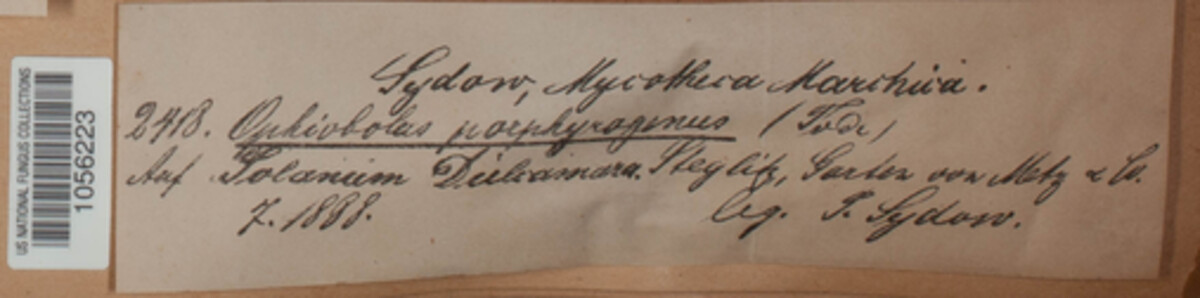 US NATIONAL FUNGUS COLLECTIONS
1056223
Sydow, Mycotheca Marchica.
2418. Ophiobolus porphyrogonus (Tode)
Auf Solanum Dulcamara. Steglitz, Garten von Metz & Co.
7. 1888. leg. P. Sydow.